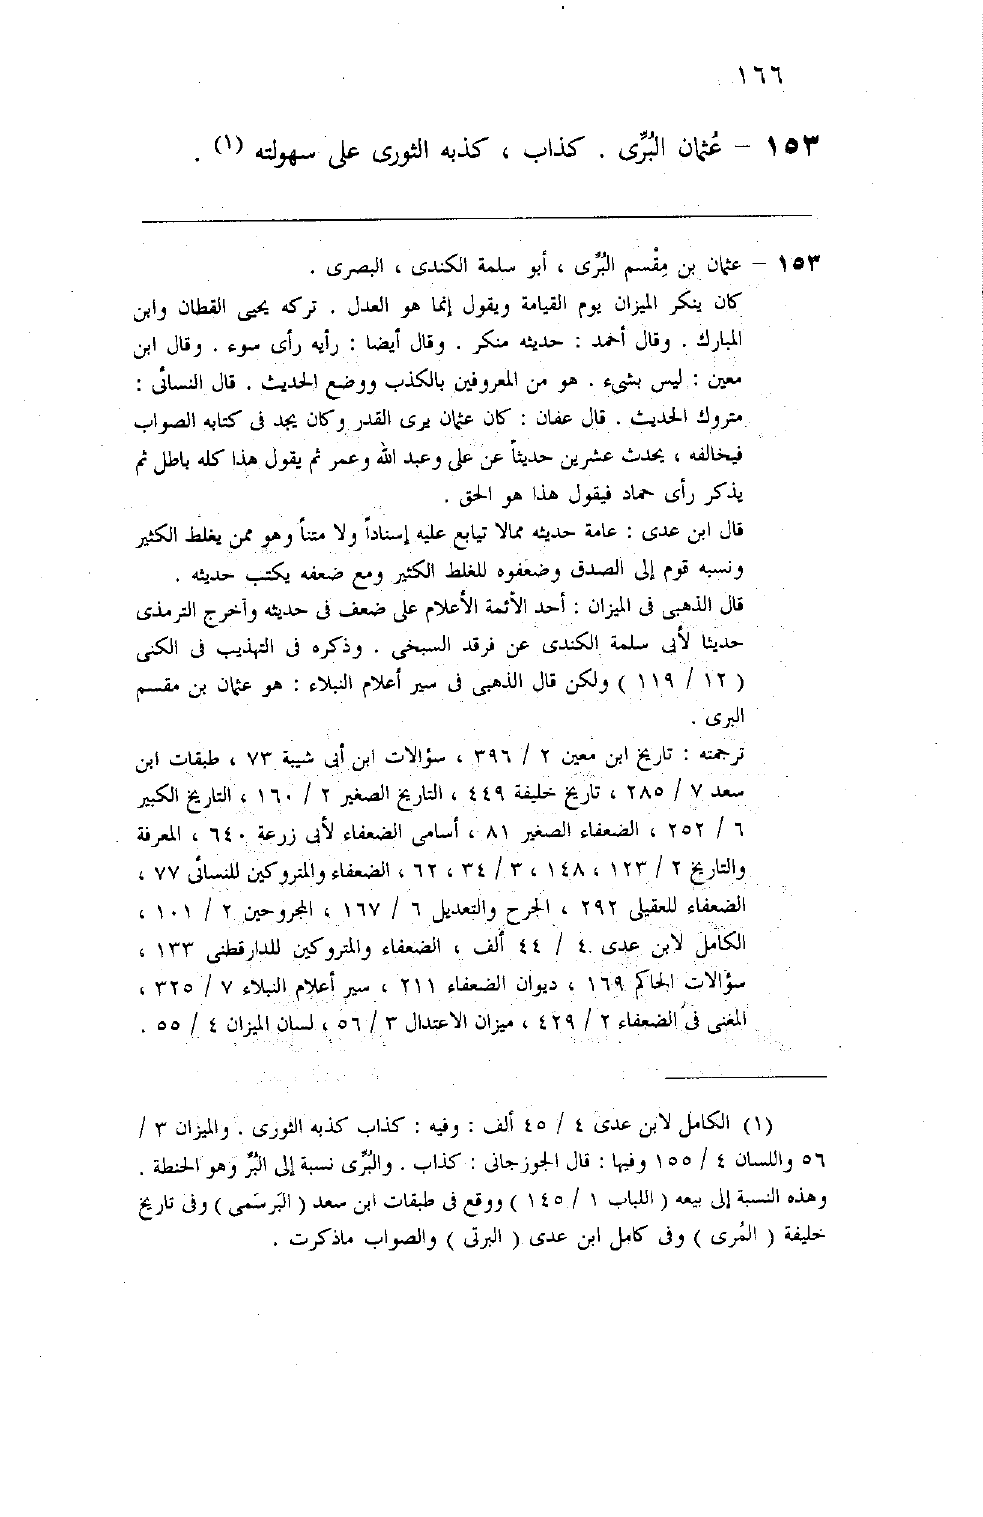 ١٦٦
١٥٣ – عُثمان البُرِّى . كذاب ، كذبه الثورى على سهولته (١) .
١٥٣ – عثمان بن مِقْسم البُرِّى ، أبو سلمة الكندى ، البصرى .
كان ينكر الميزان يوم القيامة ويقول إنما هو العدل . تركه يحيى القطان وابن
المبارك . وقال أحمد : حديثه منكر . وقال أيضا : رأيه رأى سوء . وقال ابن
معين : ليس بشىء . هو من المعروفين بالكذب ووضع الحديث . قال النسائى :
متروك الحديث . قال عفان : كان عثمان يرى القدر وكان يجد فى كتابه الصواب
فيخالفه ، يحدث عشرين حديثاً عن على وعبد الله وعمر ثم يقول هذا كله باطل ثم
يذكر رأى حماد فيقول هذا هو الحق .
قال ابن عدى : عامة حديثه ممالا تيابع عليه إسناداً ولا متناً وهو ممن يغلط الكثير
ونسبه قوم إلى الصدق وضعفوه للغلط الكثير ومع ضعفه يكتب حديثه .
قال الذهبى فى الميزان : أحد الأئمة الأعلام على ضعف فى حديثه وأخرج الترمذى
حديثا لأبى سلمة الكندى عن فرقد السبخى . وذكره فى التهذيب فى الكنى
( ١٢ / ١١٩ ) ولكن قال الذهبى فى سير أعلام النبلاء : هو عثمان بن مقسم
البرى .
ترجمته : تاريخ ابن معين ٢ / ٣٩٦ ، سؤالات ابن أبى شيبة ٧٣ ، طبقات ابن
سعد ٧ / ٢٨٥ ، تاريخ خليفة ٤٤٩ ، التاريخ الصغير ٢ / ١٦٠ ، التاريخ الكبير
٦ / ٢٥٢ ، الضعفاء الصغير ٨١ ، أسامى الضعفاء لأبى زرعة ٦٤٠ ، المعرفة
والتاريخ ٢ / ١٢٣ ، ١٤٨ ، ٣ / ٣٤ ، ٦٢ ، الضعفاء والمتروكين للنسائى ٧٧ ،
الضعفاء للعقيلى ٢٩٢ ، الجرح والتعديل ٦ / ١٦٧ ، المجروحين ٢ / ١٠١ ،
الكامل لابن عدى ٤ / ٤٤ ألف ، الضعفاء والمتروكين للدارقطنى ١٣٣ ،
سؤالات الحاكم ١٦٩ ، ديوان الضعفاء ٢١١ ، سير أعلام النبلاء ٧ / ٣٢٥ ،
المغنى فى الضعفاء ٢ / ٤٢٩ ، ميزان الاعتدال ٣ / ٥٦ ، لسان الميزان ٤ / ٥٥ .
(١) الكامل لابن عدى ٤ / ٤٥ ألف : وفيه : كذاب كذبه الثورى . والميزان ٣ /
٥٦ واللسان ٤ / ١٥٥ وفيها : قال الجوزجانى : كذاب . والبُرِّى نسبة إلى البُرّ وهو الحنطة .
وهذه النسبة إلى بيعه ( اللباب ١ / ١٤٥ ) ووقع فى طبقات ابن سعد ( البَرسَمى ) وفى تاريخ
خليفة ( المُرى ) وفى كامل ابن عدى ( البرتى ) والصواب ماذكرت .